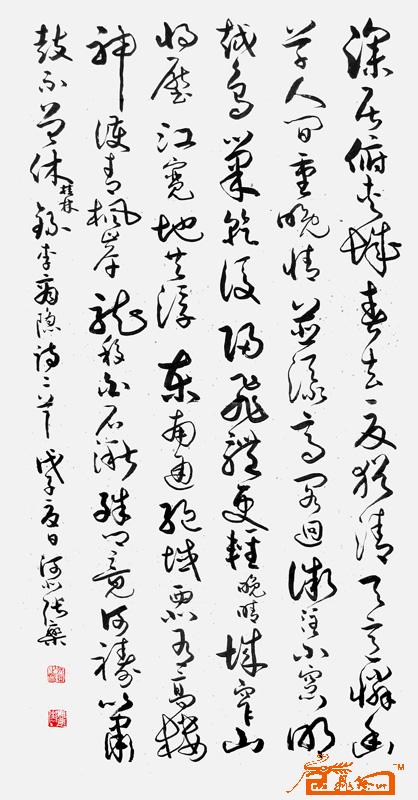 深居俯夾城春去夏猶清天意憐幽
草人間重晚晴並添高閣迥微注小窗明
越鳥巢乾後歸飛體更輕晚晴城窄山
將壓江寬地共浮東南通絕域西北有高樓
神護青楓岸龍移白石湫殊鄉竟何禱簫
鼓不曾休桂林錄李商隱詩二首戊子夏日